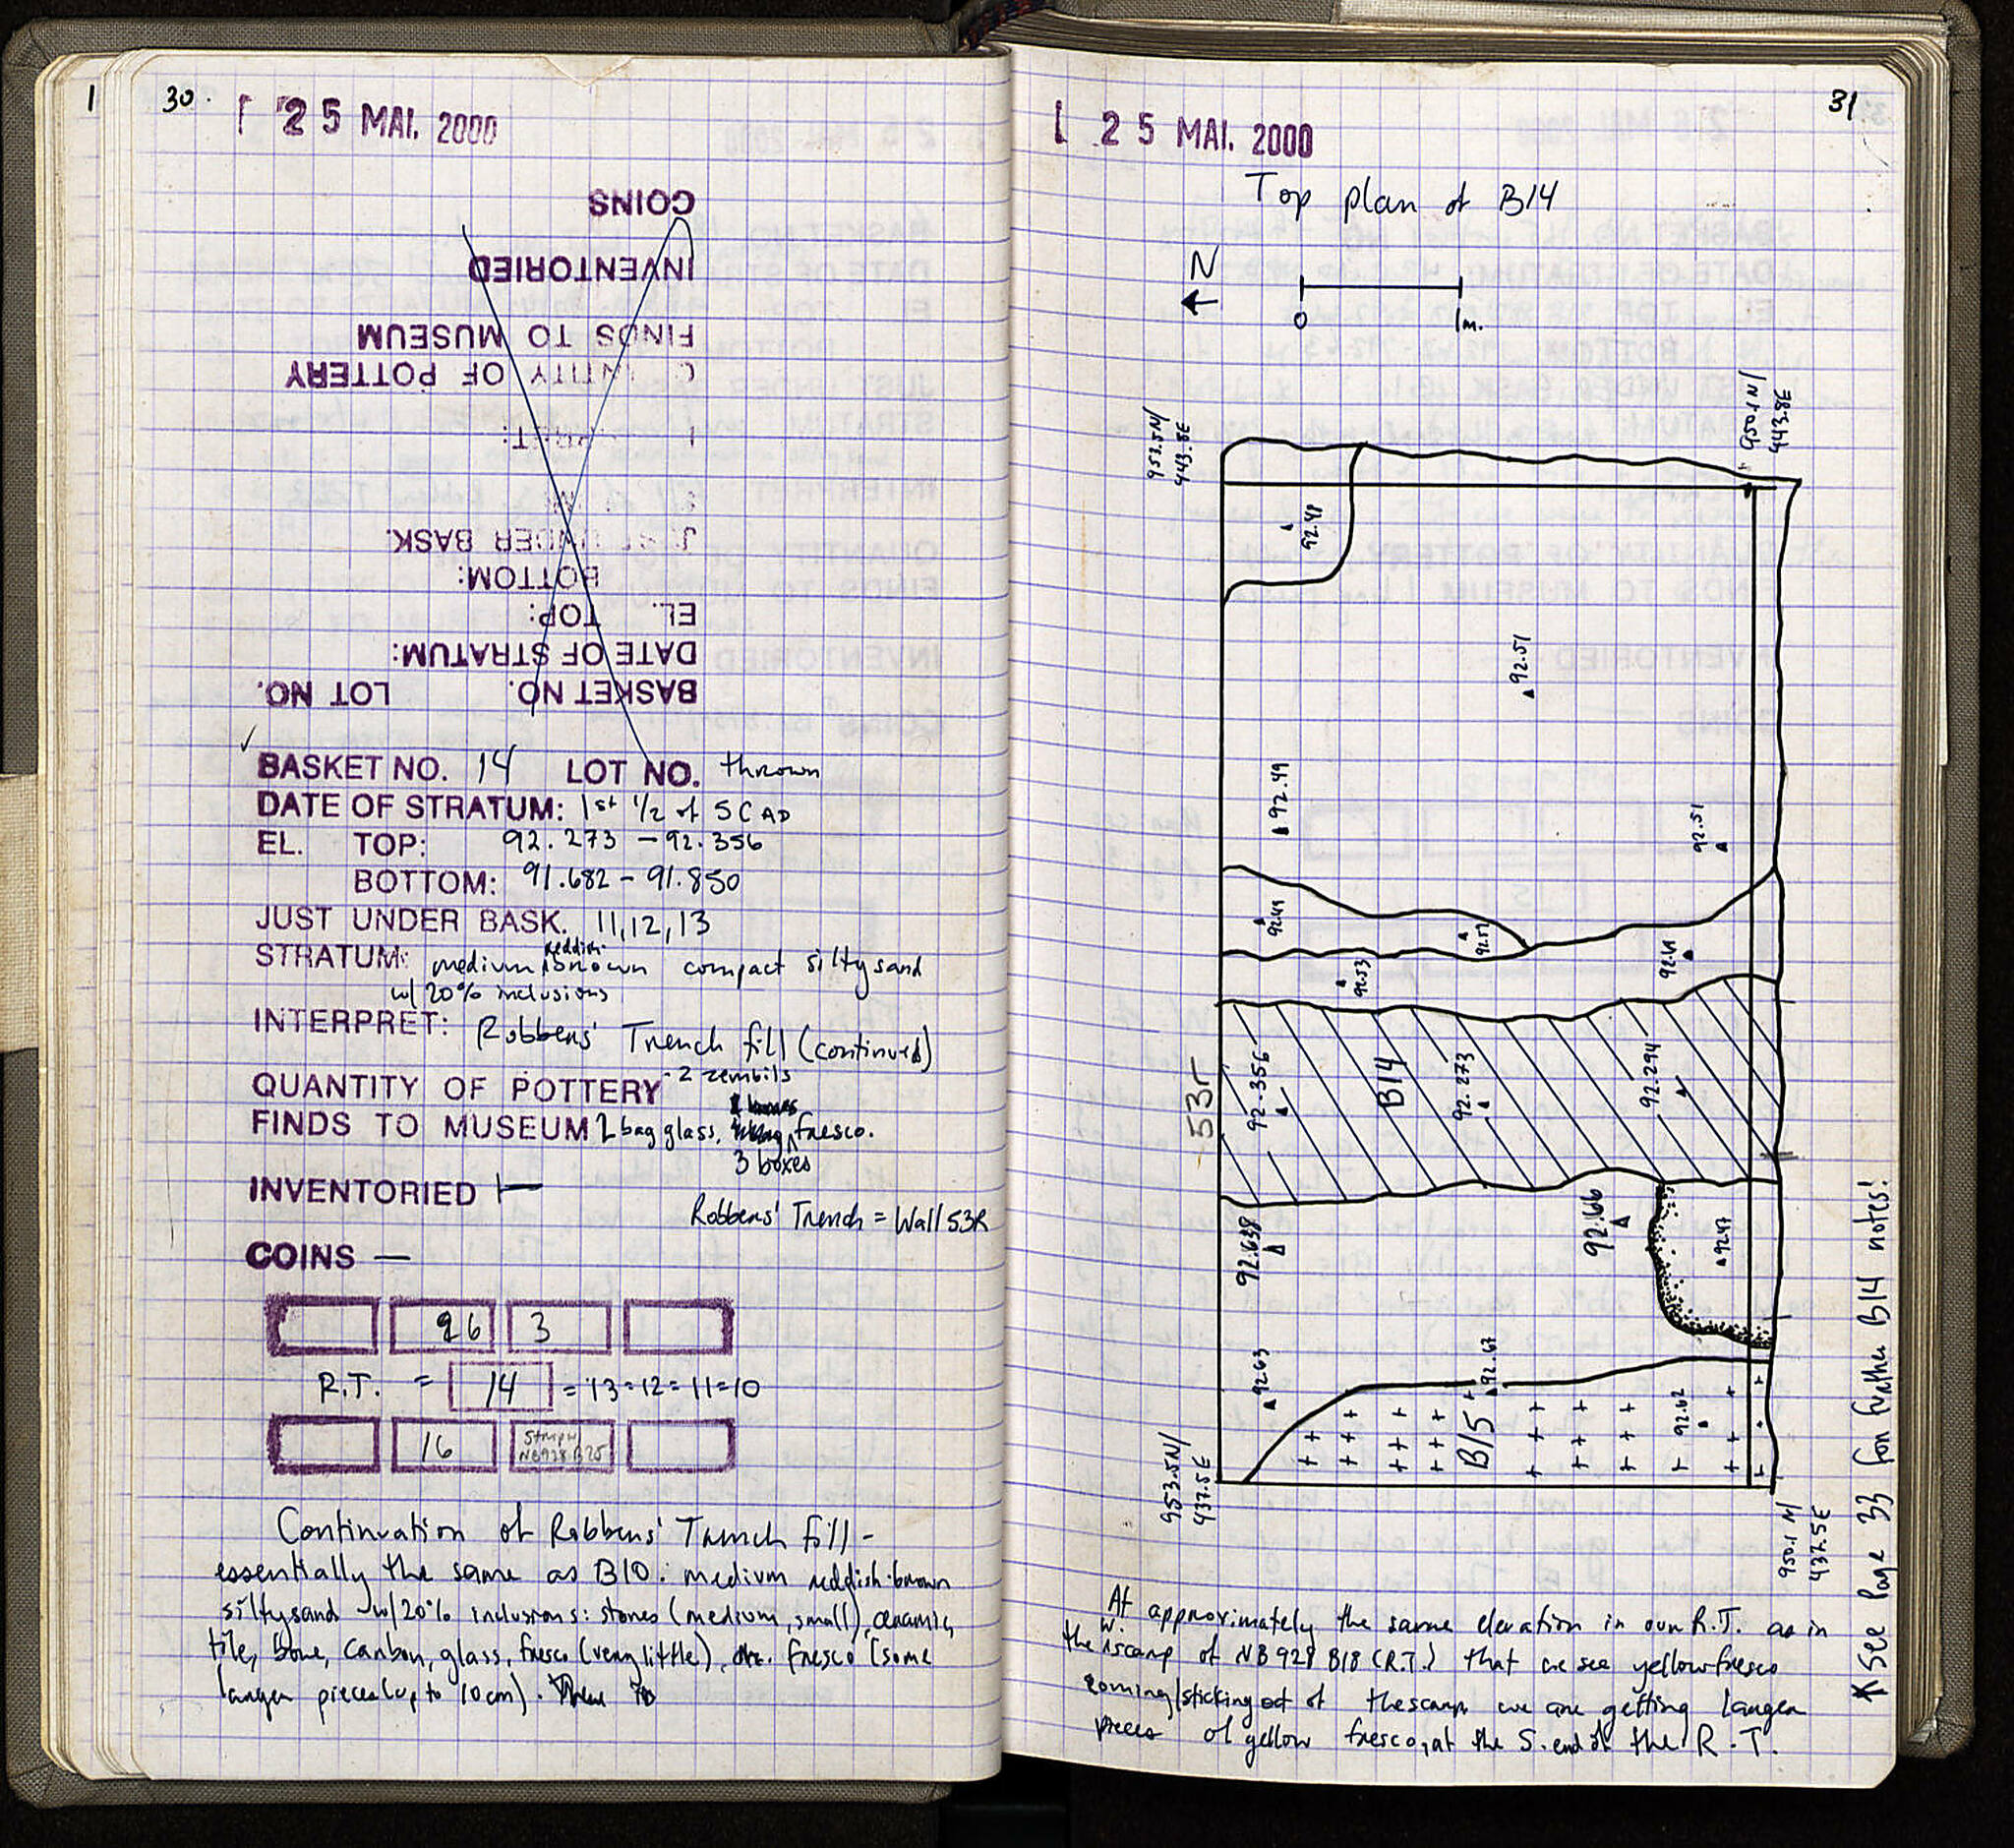 1
30.
25 MAI. 2000
COINS
INVENTORIED
FINDS TO MUSEUM
OF POTTERY
JUST UNDER BASK.
BOTTOM:
EL. TOP:
DATE OF STRATUM:
BASKET NO. LOT NO.
✓
BASKET NO. 14 LOT NO. thrown
DATE OF STRATUM: 1st 1/2 of 5 C AD
EL. TOP: 92.273 - 92.356
BOTTOM: 91.682 - 91.850
JUST UNDER BASK. 11,12,13
STRATUM: medium reddish brown compact silty sand
w/ 20% inclusions
INTERPRET: Robbers' Trench fill (continued)
QUANTITY OF POTTERY - 2 zembils
FINDS TO MUSEUM 2 bag glass, fresco.
3 boxes
INVENTORIED —
Robbers' Trench = Wall 53R
COINS —
26 3
R.T. = 14 = 13=12=11=10
16 NB928 B25
Continuation of Robbers' Trench fill -
essentially the same as B10: medium reddish-brown
silty sand w/ 20% inclusions: stones (medium, small), ceramic,
tile, bone, carbon, glass, fresco (very little), fresco (some
larger pieces (up to 10 cm).
31
25 MAI. 2000
Top plan of B14
N
0 1m.
953.5N/
443.8E
950.1N/
443.8E
92.48
92.51
92.49
92.51
92.49
92.53
53r
92.356
B14
92.273
92.294
92.638
92.66
92.47
92.63
92.67
B15
92.62
953.5N/
437.5E
950.1N/
437.5E
* See Page 33 for further B14 notes!
At approximately the same elevation in our R.T. as in
the W. scarp of NB 928 B18 (R.T.) that we see yellow fresco
coming/sticking out of the scarp, we are getting larger
pieces of yellow fresco, at the S. end of the R.T.